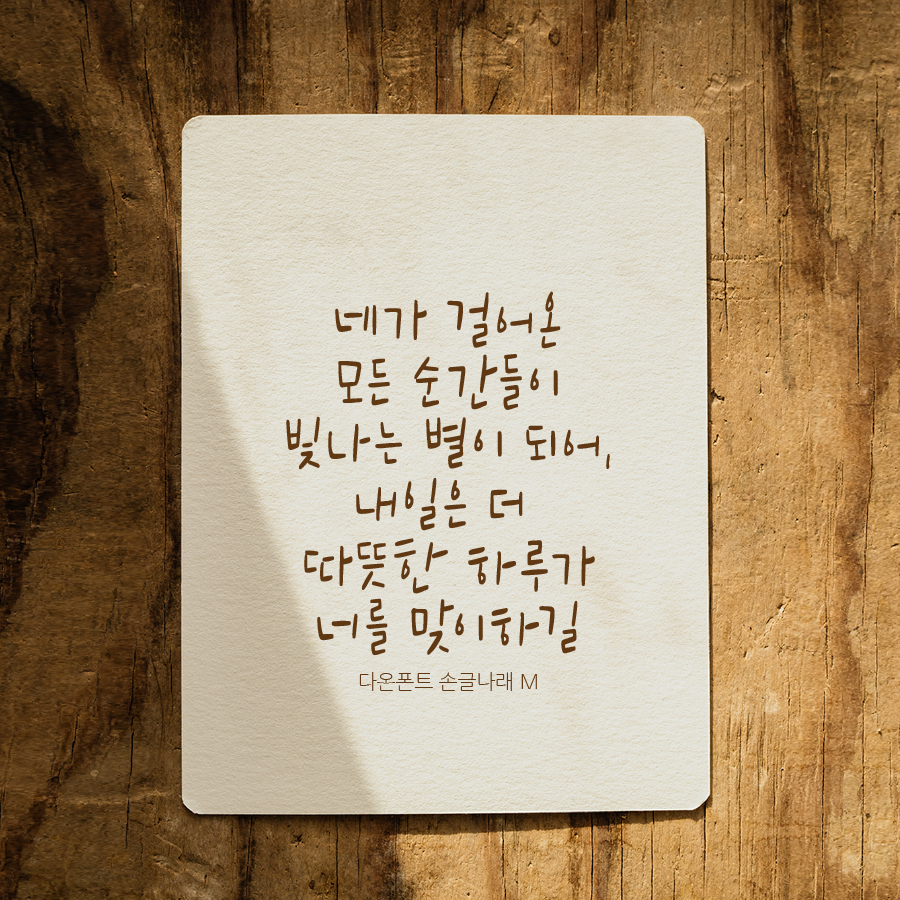 네가 걸어온
모든 순간들이
빛나는 별이 되어,
내일은 더
따뜻한 하루가
너를 맞이하길
다온폰트 손글나래 M